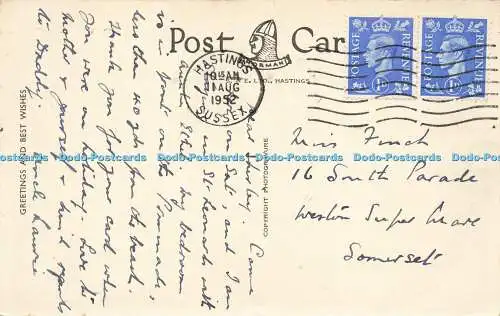 Post Card
NORMAN
HASTINGS
AM
1 AUG
1952
SUSSEX
POSTAGE REVENUE
POSTAGE REVENUE
HASTINGS.
GREETINGS AND BEST WISHES
COPYRIGHT PHOTOGRAVURE
Came
on Sat, and I am
in St. Leonards with
my bedroom
is in front on the Promenade,
less than 40 yds from the beach.
Thank you for your card when
you were on holiday. Love to
mother & yourself, kind regards
to Daddy.
Miss Finch
16 South Parade
Weston Super Mare
Somerset
Dodo-Postcards Dodo-Postcards Dodo-Postcards Dodo-Postcards Dodo-Postcards Dodo-Postcards